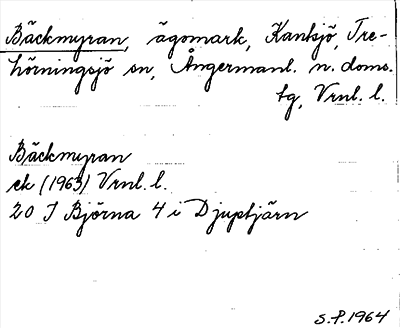 Bäckmyran, ägomark, Kantsjö, Tre-
hörningsjö sn, Ångermanl. n. doms.
tg, Vrnl. l.
Bäckmyran
ek (1963) Vrnl. l.
20 J Björna 4 i Djuptjärn
S.P. 1964